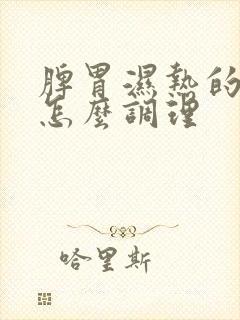 脾胃濕熱的
怎麼調理
哈里斯